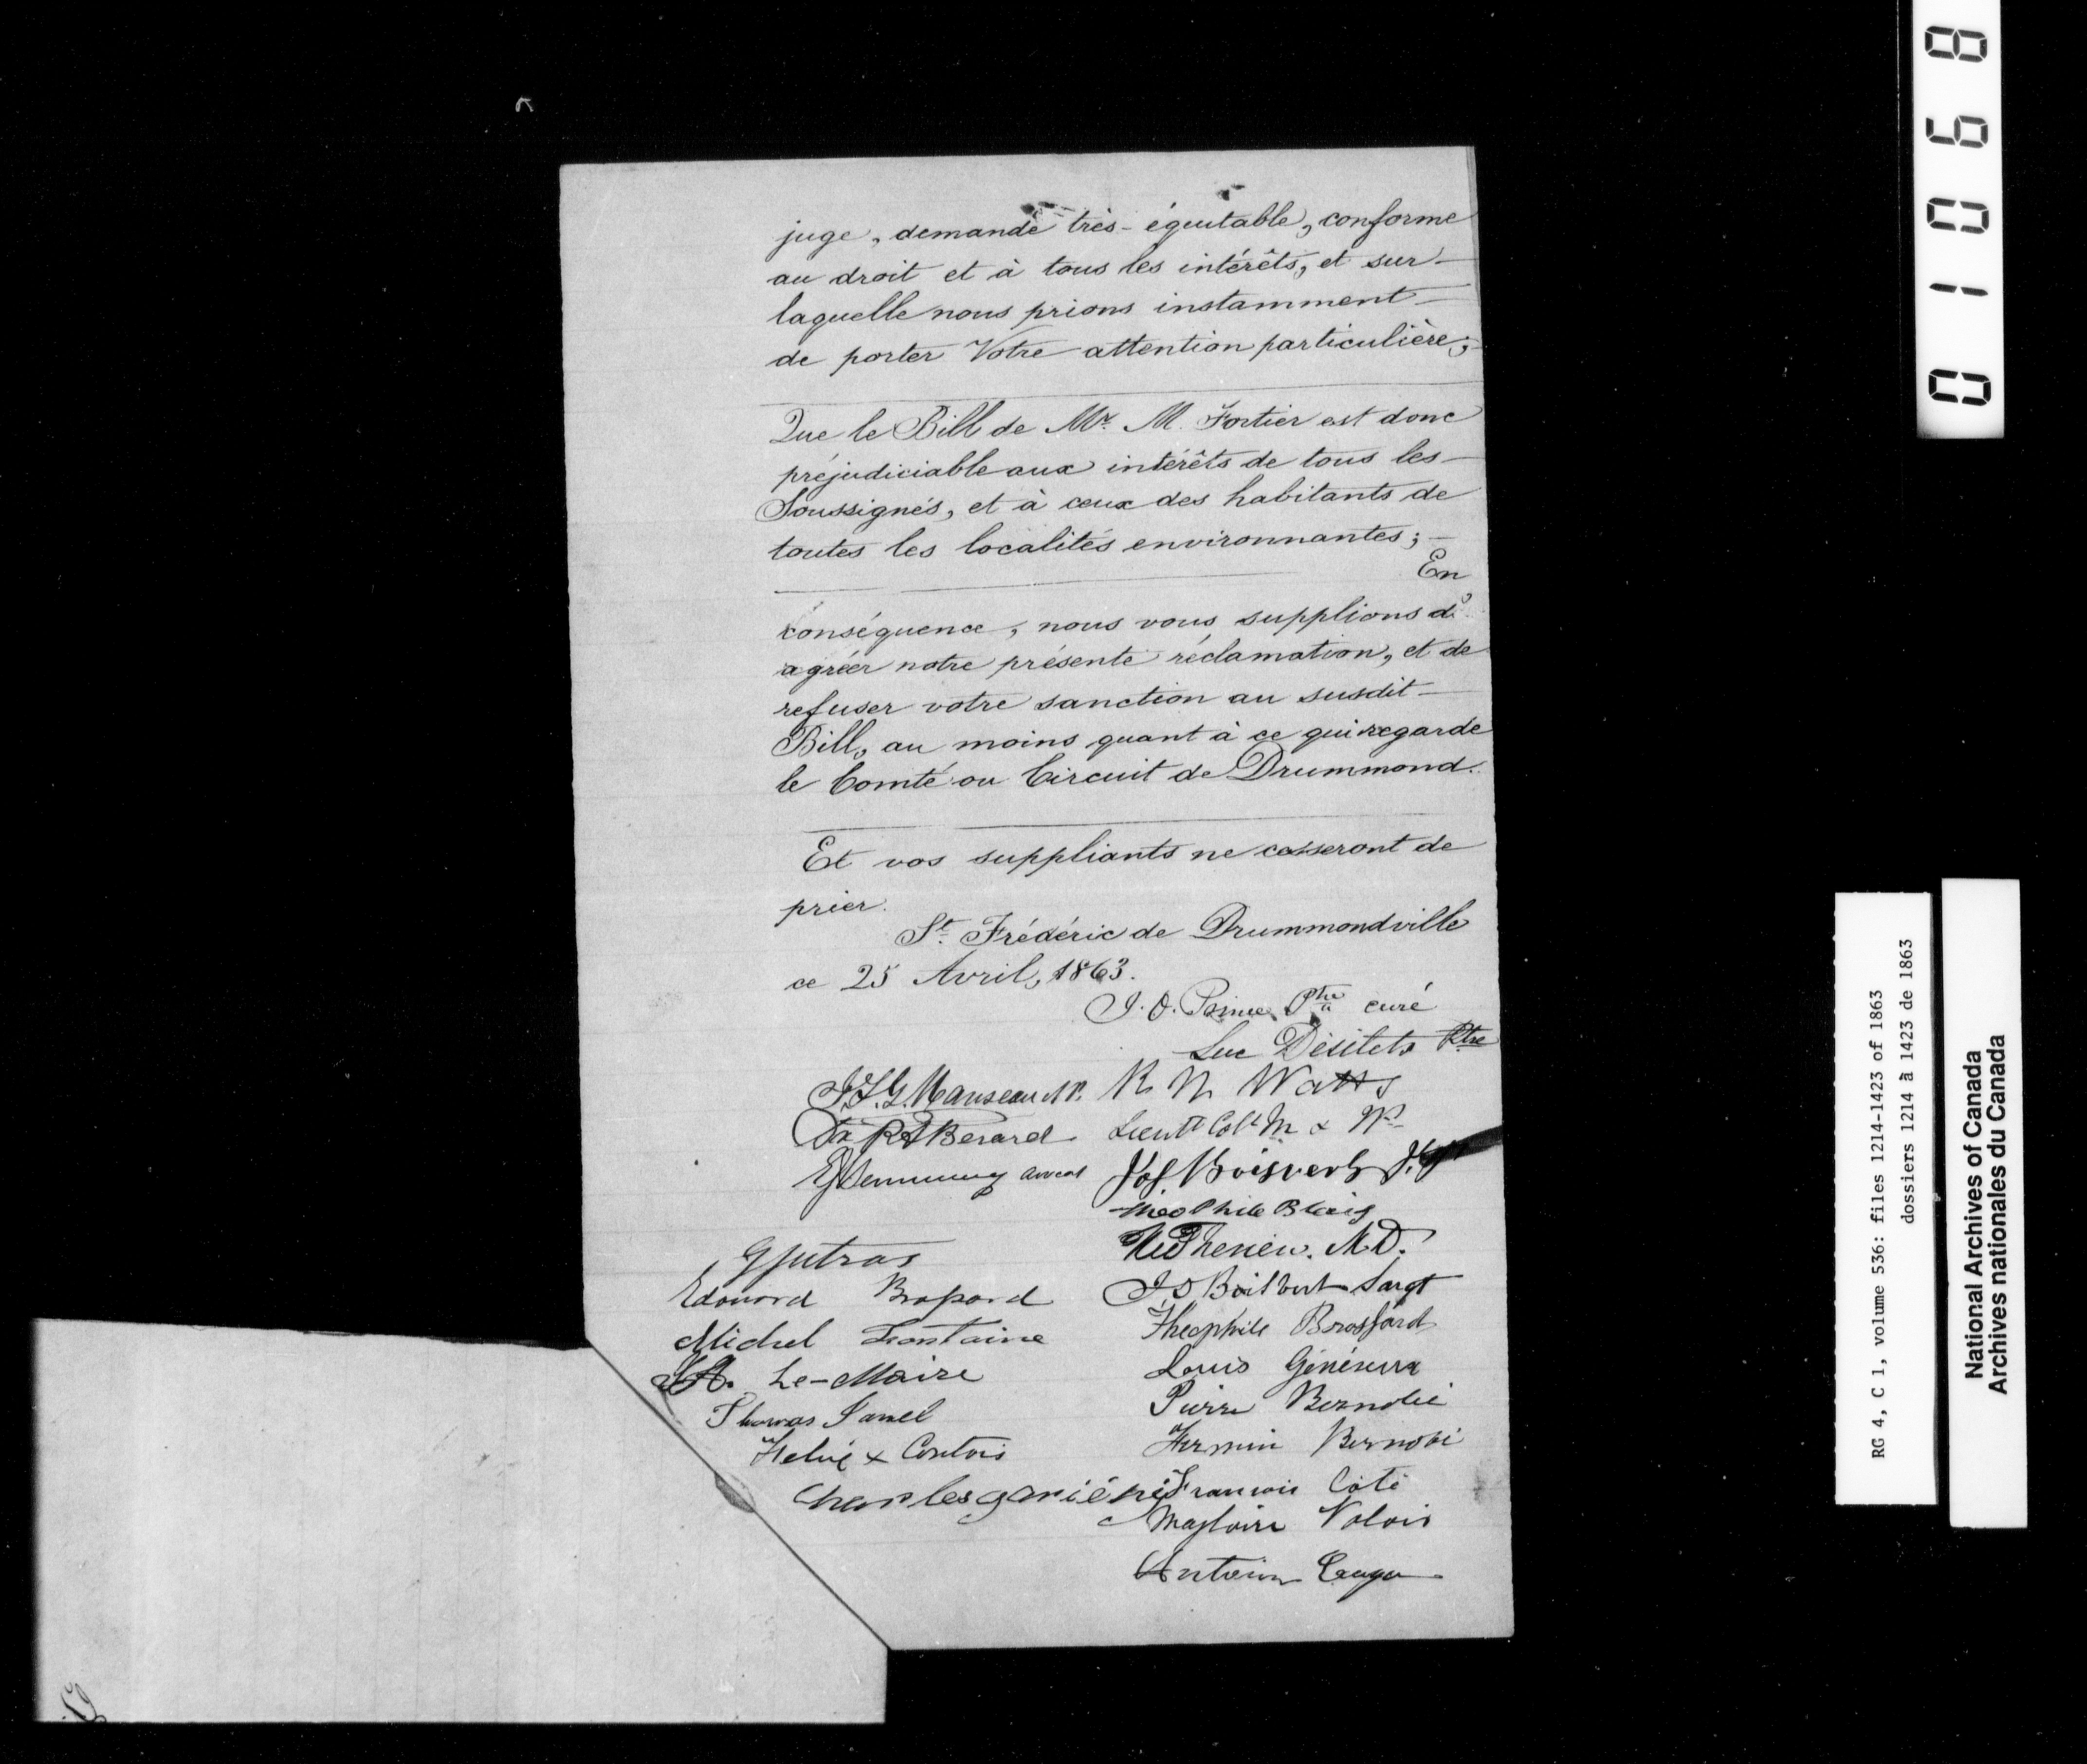 juge, demande très-équitable, conforme
au droit et à tous les intérêts, et sur
laquelle nous prions instamment
de porter Votre attention particulière;
Que le Bill de Mr. M. Fortier est donc
préjudiciable aux intérêts de tous les
Soussignés, et à ceux des habitants de
toutes les localités environnantes;
En
conséquence, nous vous supplions d'
agréer notre présente réclamation, et de
refuser votre sanction au susdit
Bill, au moins quant à ce qui regarde
le Comté ou Circuit de Drummond.
Et vos suppliants ne cesseront de
prier.
St. Frédéric de Drummondville
ce 25 Avril, 1863.
J. O. Prince Ptre curé
Luc Désilets Ptre
J.L.G. Manseau N.P. R N Watts
Bérard Lieutt Coll M
avocat Jos Boisvert
Théophile Blais
M.D.
G Jutras J O Boisvert Sargt
Edouard Brassard Théophile Brassard
Michel Fontaine Louis Généreux
A. Le-Maire Pierre
Thomas
x Contois
Charles gariépi Francois Côté
Magloire Valois
Antoine
0 1 0 6 8
RG 4, C 1, volume 536: files 1214-1423 of 1863
dossiers 1214 à 1423 de 1863
National Archives of Canada
Archives nationales du Canada